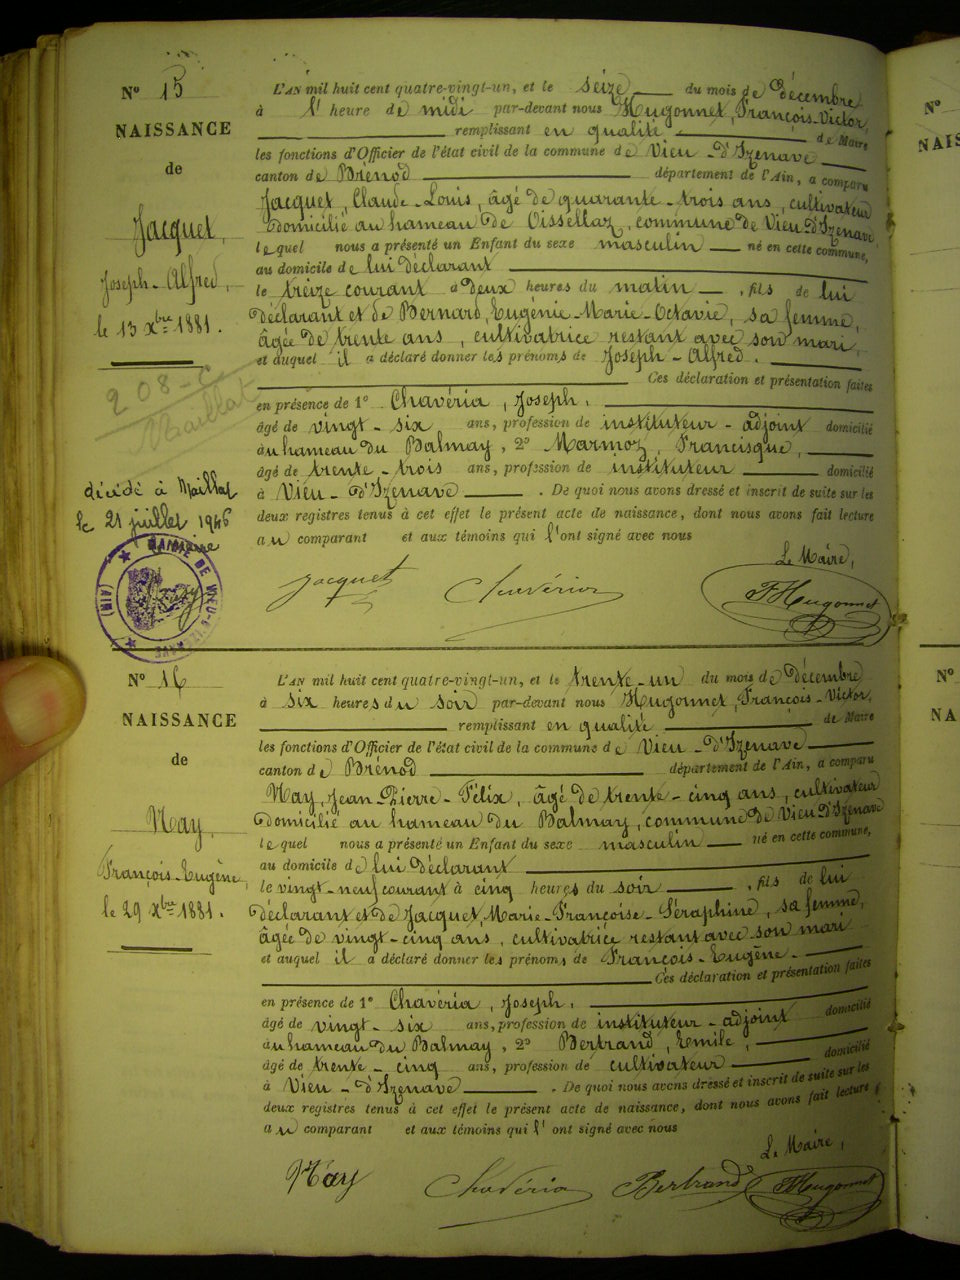 N° 15
NAISSANCE
de
Jacquet,
Joseph-Alfred,
le 13 xbre 1881.
208-C
Maillat
décédé à Maillat
le 21 juillet 1946
MAIRIE DE VIEU-D'IZENAVE (AIN)
L'AN mil huit cent quatre-vingt-un, et le seize du mois de Décembre
à l' heure de midi par-devant nous Hugonnet, François-Victor,
remplissant en qualité de Maire
les fonctions d'Officier de l'état civil de la commune de Vieu-d'Izenave
canton de Brénod département de l'Ain, a comparu
Jacquet, Claude-Louis, âgé de quarante-trois ans, cultivateur
domicilié au hameau de Vissellaz, commune de Vieu-d'Izenave,
lequel nous a présenté un Enfant du sexe masculin né en cette commune,
au domicile de lui déclarant
le treize courant à deux heures du matin, fils de lui
déclarant et de Bernard, Eugénie-Marie-Octavie, sa femme,
âgée de trente ans, cultivatrice restant avec son mari
et auquel il a déclaré donner les prénoms de Joseph-Alfred.
Ces déclaration et présentation faites
en présence de 1° Chavéria, Joseph,
âgé de vingt-six ans, profession de instituteur-adjoint domicilié
au hameau du Balmay, 2° Marmoz, Francisque,
âgé de trente-trois ans, profession de instituteur domicilié
à Vieu-d'Izenave. De quoi nous avons dressé et inscrit de suite sur les
deux registres tenus à cet effet le présent acte de naissance, dont nous avons fait lecture
au comparant et aux témoins qui l'ont signé avec nous
Le Maire,
Jacquet Chavéria FHugonnet
N° 16
NAISSANCE
de
Nay,
François-Eugène,
le 29 xbre 1881.
L'AN mil huit cent quatre-vingt-un, et le trente-un du mois de Décembre
à six heures du soir par-devant nous Hugonnet, François-Victor,
remplissant en qualité de Maire
les fonctions d'Officier de l'état civil de la commune de Vieu-d'Izenave
canton de Brénod département de l'Ain, a comparu
Nay, Jean Pierre-Félix, âgé de trente-cinq ans, cultivateur
domicilié au hameau du Balmay, commune de Vieu d'Izenave
lequel nous a présenté un Enfant du sexe masculin né en cette commune,
au domicile de lui déclarant
le vingt-neuf courant à cinq heures du soir, fils de lui
déclarant et de Jacquet, Marie-Françoise-Séraphine, sa femme,
âgée de vingt-cinq ans, cultivatrice restant avec son mari
et auquel il a déclaré donner les prénoms de François-Eugène.
Ces déclaration et présentation faites
en présence de 1° Chavéria, Joseph,
âgé de vingt-six ans, profession de instituteur-adjoint domicilié
au hameau du Balmay, 2° Bertrand, Emile,
âgé de trente-cinq ans, profession de cultivateur domicilié
à Vieu-d'Izenave. De quoi nous avons dressé et inscrit de suite sur les
deux registres tenus à cet effet le présent acte de naissance, dont nous avons fait lecture
au comparant et aux témoins qui l'ont signé avec nous
Le Maire,
Nay Chavéria Bertrand FHugonnet
N°
NAIS
N°
NA